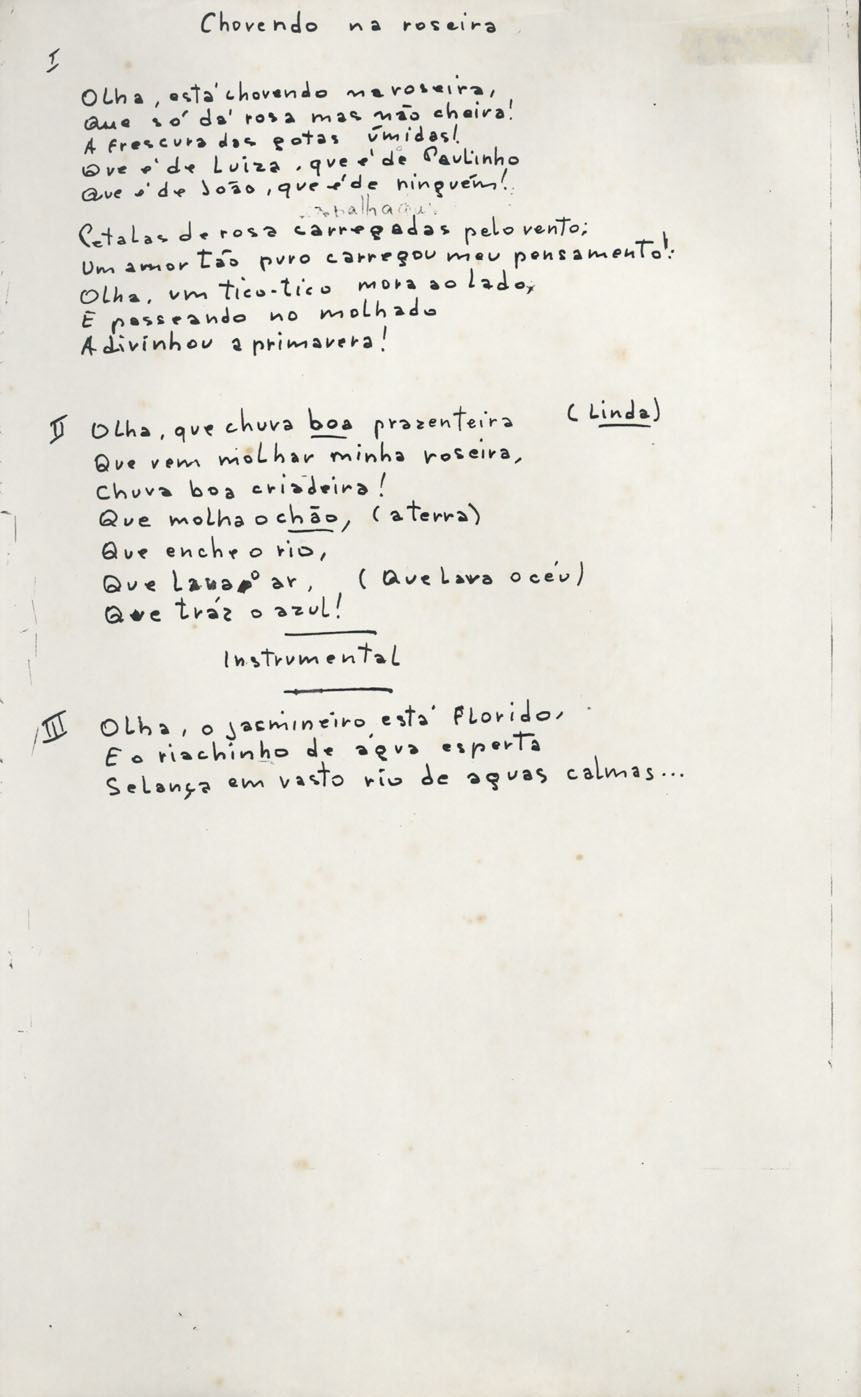 Chovendo na roseira
I
Olha, está chovendo na roseira,
Que só dá rosa mas não cheira!
A frescura das gotas úmidas!
Que é de Luiza, que é de Paulinho
Que é de João, que é de ninguém!
Petalas de rosa carregadas pelo vento;
Um amor tão puro carregou meu pensamento!
Olha, um tico-tico mora ao lado,
E passeando no molhado
Adivinhou a primavera!
II Olha, que chuva boa prazenteira (Linda)
Que vem molhar minha roseira,
Chuva boa criadeira!
Que molha o chão, (a terra)
Que enche o rio,
Que lava o ar, (Que lava o céu)
Que tráz o azul!
Instrumental
III Olha, o jasmineiro está florido,
E o riachinho de água esperta
Se lança em vasto rio de aguas calmas...